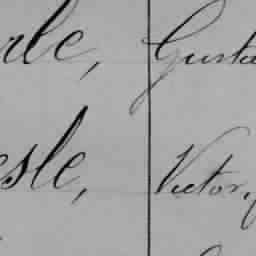 rle, Gusta
esle, Victor,